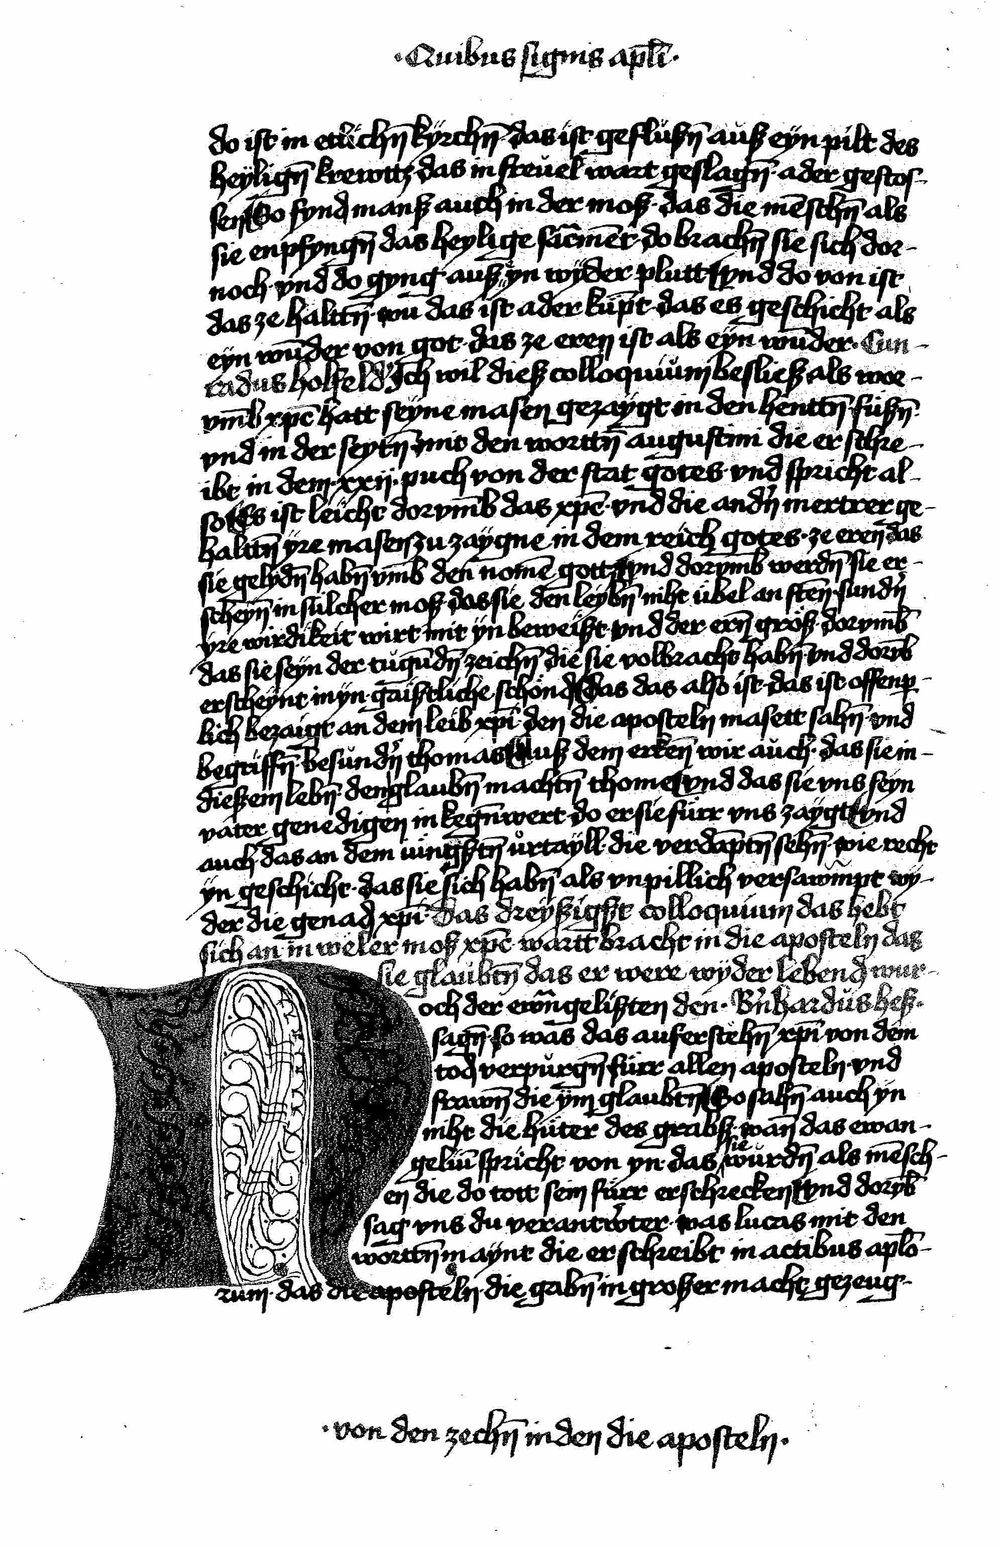 ·Quibus signis apl̄i·
do ist in etlichn̄ kÿrchn̄ das ist geflüßn̄ auß eyn pilt des
heylign̄ krewttz das in freuel wart geslagn̄ ader gestos-
sen So fynd manß auch in der moß das die mēschn̄ als
sie enpfyngn̄ das heylige sacm̄et do brachn̄ sie sich dor-
noch vnd do gyng auß yn wÿder plutt vnd do von ist
das ze haltn̄ wū das ist ader kūpt das es geschicht als
eyn wūder von got das ze eren ist als eyn wūder· Cun-
radus holfeld' Ich wil dieß colloquiūm besließ als wor-
vm̄b xp̄c hatt seyne masen gezaygt in den henttn̄ füßn̄
vnd in der seytn̄ mit den worttn̄ augustini die er schre-
ibt in dem·xxij·puch von der stat gotes vnd spricht al-
so Es ist leicht dorvm̄b das xp̄c vnd die andn̄ mertrer ge-
halttn̄ yre masen zu zaygne in dem reich gotes ze eren das
sie gelydn̄ habn̄ vm̄b den nomē gotts vnd dorvm̄b werdn̄ sie er-
scheyn in sülcher moß das sie den leybn̄ niht übel an sten sundn̄
yre wirdikeit wirt mit yn beweißt vnd der ern̄ größ dorvm̄b
das sie seyn der tugūdn̄ zeichn̄ die sie volbracht habn̄ vnd dorvb̄
erscheynt in yn gaistliche schönd Das das also ist das ist offenp-
lich bezaigt an dem leib xp̄i den die aposteln masett sahn̄ vnd
begriffn̄ besūndn̄ thomas Auß dem erkēn wir auch das sie in-
dießem lebn̄ den glaubn̄ machtn̄ thome vnd das sie vns seyn
vater genedigen in kegn̄wert do er sie fürr vns zaygt vnd
auch das an dem iüngstn̄ ürtayll die verdāptn̄ sehn̄ wie recht
yn geschicht das sie sich habn̄ als vnpillich versawm̄pt wy-
der die genad xp̄i· Das dreyßigst colloquium das hebt
sich an in weler moß xp̄c wartt bracht in die aposteln das
sie glaubtn̄ das er were wÿder lebend wur-
och der ewāngelißten den· Bn̄hardus heß·
sagn̄ so was das aufersteh̄n xp̄i von dem
tod verpürgn̄ fürr allen aposteln vnd
frawn̄ die ym glaubtn̄ So sahn̄ auch yn
niht die hüter des grabß wan̄ das ewan-
geliū spricht von yn das sie würdn̄ als mēsch-
en die do tott sein fürr erschrecken vnd dorvb̄
sag vns du verantwrter was lucas mit den
worttn̄ maynt die er schreibt in actibus aplo-
rum·das die aposteln die gabn̄ in großer macht gezeug-
·von den zechn̄ in den die aposteln·